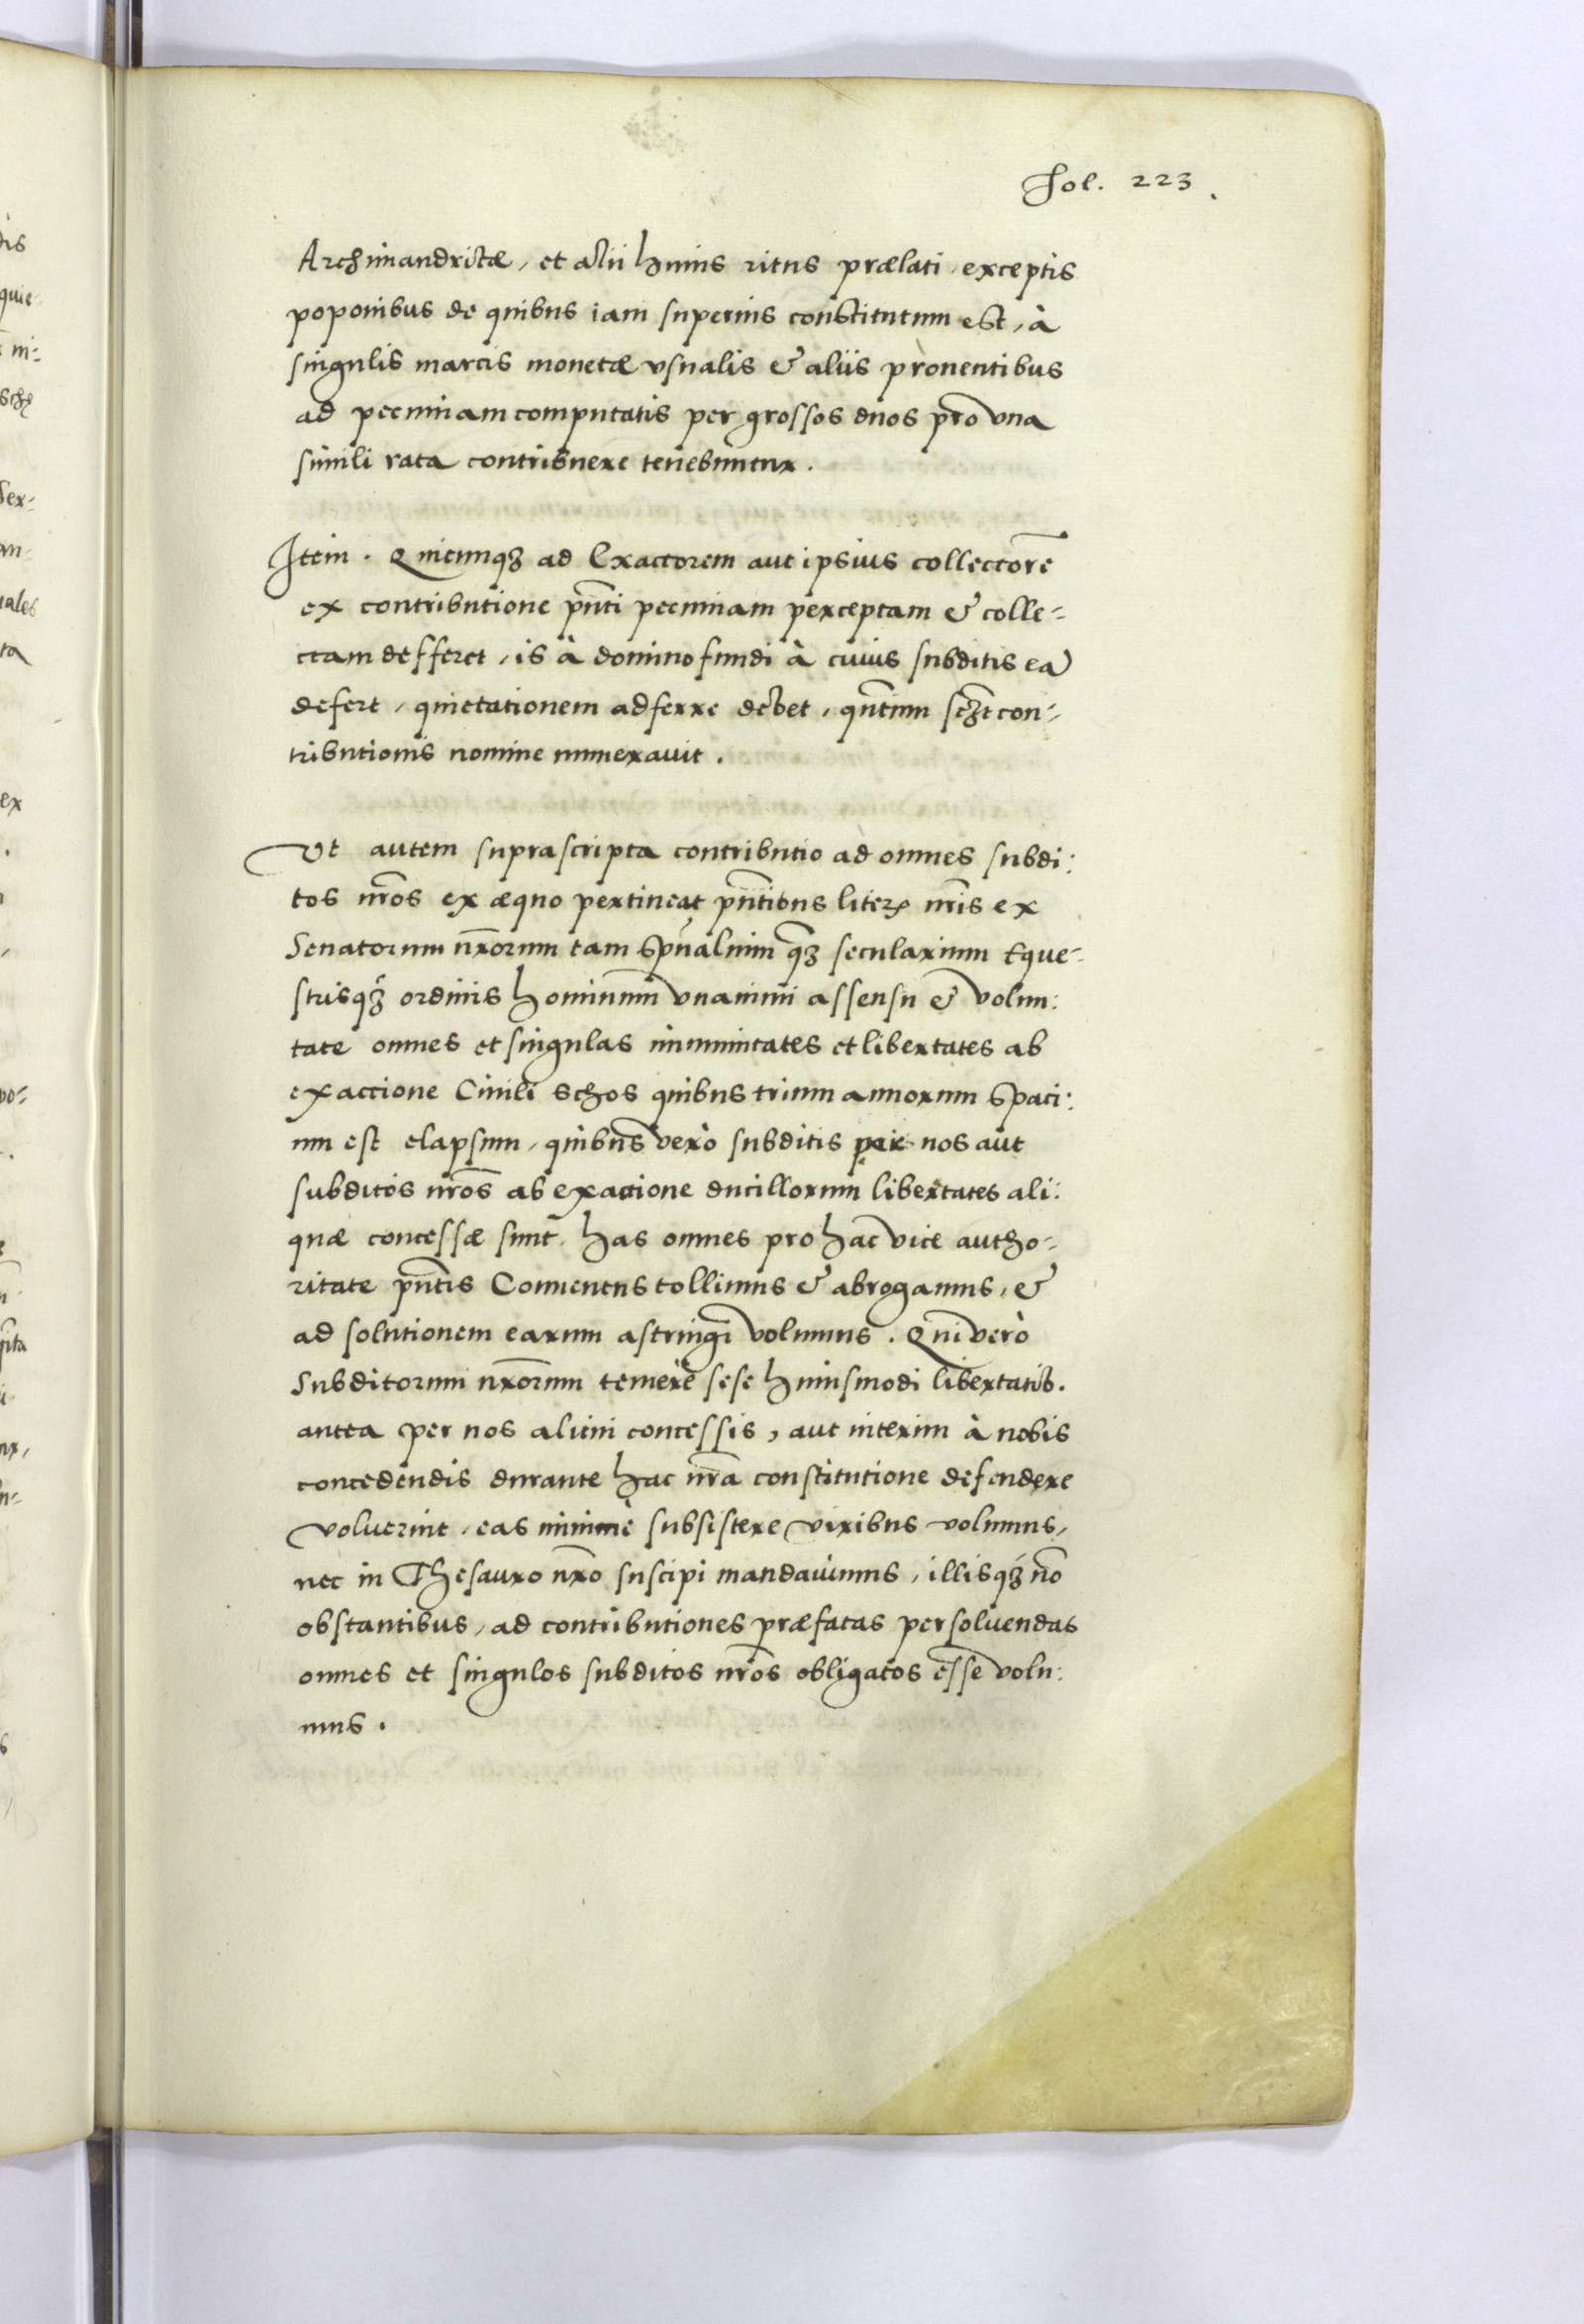 Fol. 223.
Archimandritæ, et alii huius ritus prælati exceptis
poponibus de quibus iam superius constitutum est, à
singulis marcis monetæ vsualis & aliis prouentibus
ad pecuniam computatis per grossos duos pro vna
simili rata contribuere tenebuntur.
Item. Quicunqꝫ ad Exactorem aut ipsius collectorē
ex contributione pñti pecuniam perceptam & colle-
ctam defferet, is à domino fundi à cuius subditis eā
defert, quietationem adferre debet, qñtum schͣt con-
tributionis nomine numerauit.
Vt autem suprascripta contributio ad omnes subdi:
tos nr̃os ex æquo pertineat pñtibus literꝭ nr̃is ex
Senatorum nr̃orum tam spũalium qꝫ secularium Eque-
strisqꝫ ordinis hominum vnanimi assensu & volun:
tate omnes et singulas immunitates et libertates ab
exactione Ciuili schos quibus trium annorum spaci:
um est elapsum, quibus vero subditis per nos aut
subditos nr̃os ab exactione ducillorum libertates ali:
quæ concessæ sunt has omnes pro hac vice autho-
ritate pñtis Conuentus tollimus & abrogamus, &
ad solutionem earum astringi volumus. Qui verò
Subditorum nr̃orum temerè sese huiusmodi libertatib.
antea per nos alicui concessis, aut interim à nobis
concedendis durante hac nr̃a constitutione defendere
voluerint, eas minimè subsistere viribus volumus,
nec in Thesauro nr̃o suscipi mandauimus, illisqꝫ nõ
obstantibus, ad contributiones præfatas persoluendas
omnes et singulos subditos nr̃os obligatos esse volu:
mus.